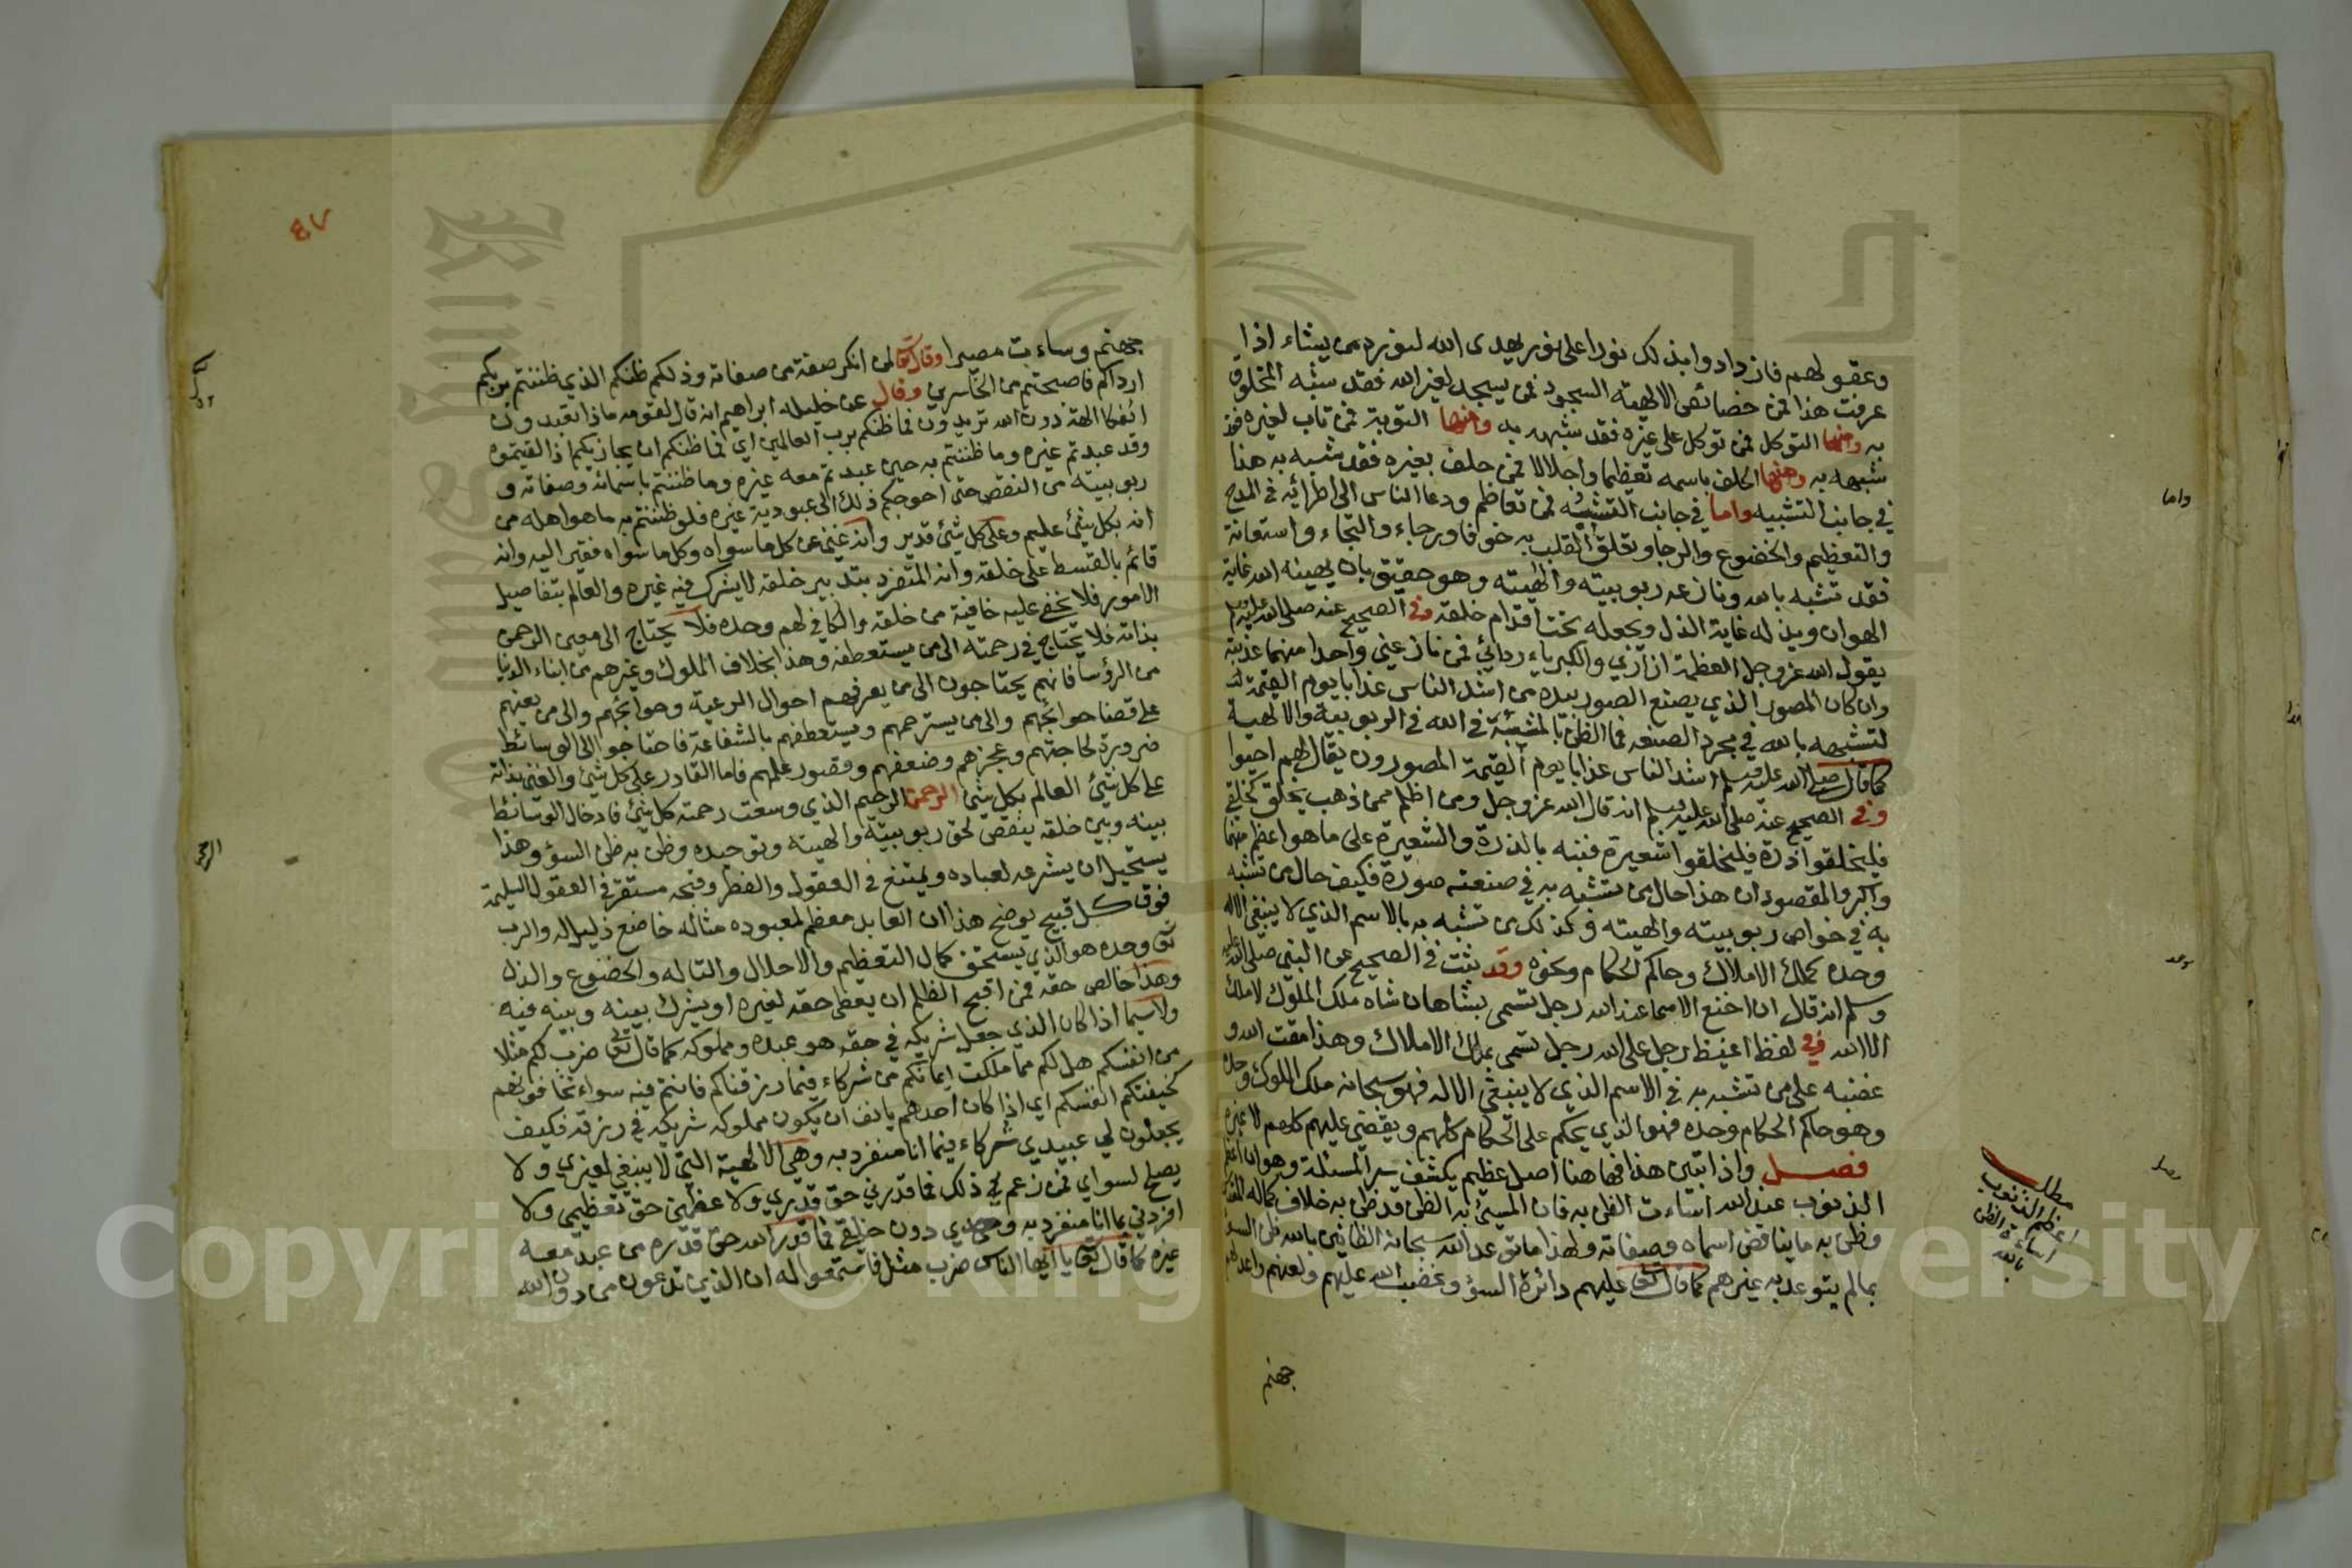 وعقولهم فازدادوا بذلك نورا على نور يهدى الله لنوره من يشاء اذا
عرفت هذا فمن خصائص الالهية السجود فمن يسجد لغير الله فقد شبه المخلوق
به ومنها التوكل فمن توكل على غيره فقد شبهه به ومنها التوبة فمن تاب لغيره فقد
شبهه به ومنها الحلف باسمه تعظيما واجلالا فمن حلف بغيره فقد شبه به هذا
في جانب التشبيه واما في جانب التشبه فمن تعاظم ودعا الناس الى اطرائه في المدح
والتعظيم والخضوع والرجا وتعلق القلب به خوفا ورجاء والتجاء واستعانة
فقد تشبه بالله ونازعه ربوبيته والهيته وهو حقيق بان يهينه الله غاية
الهوان ويذله غاية الذل ويجعله تحت اقدام خلقه وفي الصحيح عنه صلى الله عليه وسلم
يقول الله عز وجل العظمة ازاري والكبرياء ردائي فمن نازعني واحدا منهما عذبته
وان كان المصور الذي يصنع الصور بيده من اشد الناس عذابا يوم القيمة
لتشبهه بالله في مجرد الصنعة فما الظن بالتشبه في الله في الربوبية والالهية
كما قال صلى الله عليه وسلم اشد الناس عذابا يوم القيمة المصورون يقال لهم احيوا
وفي الصحيح عنه صلى الله عليه وسلم انه قال الله عز وجل ومن اظلم ممن ذهب يخلق كخلقي
فليخلقوا ذرة فليخلقوا شعيرة فنبه بالذرة والشعيرة على ما هو اعظم منهما
واكبر والمقصود ان هذا حال من تشبه به في صنعته صورة فكيف حال من تشبه
به في خواص ربوبيته والهيته وكذلك من تشبه به بالاسم الذي لا ينبغي الا له
وحده كملك الاملاك وحاكم الحكام ونحوه وقد ثبت في الصحيح عن النبي صلى الله عليه
وسلم انه قال ان اخنع الاسما عند الله رجل تسمى بشاهان شاه ملك الملوك لا ملك
الا الله وفي لفظ اغيظ رجل على الله رجل تسمى بملك الاملاك وهذا مقت الله و
غضبه على من تشبه به في الاسم الذي لا ينبغي الا له فهو سبحانه ملك الملوك وحده
وهو حاكم الحكام وحده فهو الذي يحكم على الحكام كلهم ويقضي عليهم كلهم لا غيره
فصل واذا تبين هذا فها هنا اصل عظيم يكشف سر المسئلة وهو ان اعظم
الذنوب عند الله اساءت الظن به فان المسئ به الظن قد ظن به خلاف كماله المقدس
وظن به ما يناقض اسماه وصفاته ولهذا ما توعد الله سبحانه الظانين بالله ظن السوء
بما لم يتوعد به غيرهم كما قال تعالى عليهم دائرة السؤ وغضب الله عليهم ولعنهم واعد لهم
جهنم
واما
مطلب
اعظم الذنوب
اساءة الظن
بالله
٤٧
جهنم وساءت مصيرا وقال تعالى لمن انكر صفة من صفاته وذلكم ظنكم الذي ظننتم بربكم
ارداكم فاصبحتم من الخاسرين وقال عن خليله ابراهيم انه قال لقومه ماذا تعبدون
ائفكا الهة دون الله تريدون فما ظنكم برب العالمين اي فما ظنكم ان يجازيكم اذا لقيتموه
وقد عبدتم غيره وما ظننتم به حين عبدتم معه غيره وما ظننتم باسمائه وصفاته و
ربوبيته من النقص حتى احوجكم ذلك الى عبودية غيره فلو ظننتم به ما هو اهله من
انه بكل شئ عليم وعلى كل شئ قدير وانه غني عن كل ما سواه وكل ما سواه فقير اليه وانه
قائم بالقسط على خلقه وانه المتفرد بتدبير خلقه لا يشرك فيه غيره والعالم بتفاصيل
الامور فلا تخفى عليه خافية من خلقه والكافي لهم وحده فلا يحتاج الى معين الرحمن
بذاته فلا يحتاج في رحمته الى من يستعطفه وهذا بخلاف الملوك وغيرهم من ابناء الدنيا
من الرؤسا فانهم يحتاجون الى من يعرفهم احوال الرعية وحوائجهم والى من يعينهم
على قضا حوائجهم والى من يسترحمهم ويستعطفهم بالشفاعة فاحتاجوا الى الوسائط
ضرورة لحاجتهم وعجزهم وضعفهم وقصور علمهم فاما القادر على كل شئ والغني بذاته
على كل شئ العالم بكل شئ الرحمن الرحيم الذي وسعت رحمته كل شئ فادخال الوسائط
بينه وبين خلقه ينقص لحق ربوبيته والهيته وتوحيده وظن به ظن السؤ وهذا
يستحيل ان يشرعه لعباده ويمتنع في العقول والفطر وقبحه مستقر في العقول السليمة
فوق كل قبيح يوضح هذا ان العابد معظم لمعبوده متأله خاضع ذليل له والرب
تعالى وحده هو الذي يستحق كمال التعظيم والاجلال والتاله والخضوع والذل
وهذا خالص حقه فمن اقبح الظلم ان يعطى حقه لغيره او يشرك بينه وبينه فيه
ولا سيما اذا كان الذي جعل شريكه في حقه هو عبده ومملوكه كما قال تعالى ضرب لكم مثلا
من انفسكم هل لكم مما ملكت ايمانكم من شركاء فيما رزقناكم فانتم فيه سواء تخافونهم
كخيفتكم انفسكم اي اذا كان احدهم يانف ان يكون مملوكه شريكه في رزقه فكيف
يجعلون لي عبيدي شركاء فيما انا منفرد به وهي الالهية التي لا ينبغي لغيري ولا
يصلح لسواي فمن زعم ذلك فما قدرني حق قدري ولا عظمني حق تعظيمي ولا
افردني بما انا منفرد به وحدي دون خلقي فما قدر الله حق قدره من عبد معه
غيره كما قال تعالى يا ايها الناس ضرب مثل فاستمعوا له ان الذين تدعون من دون الله
Copyright © King Saud University